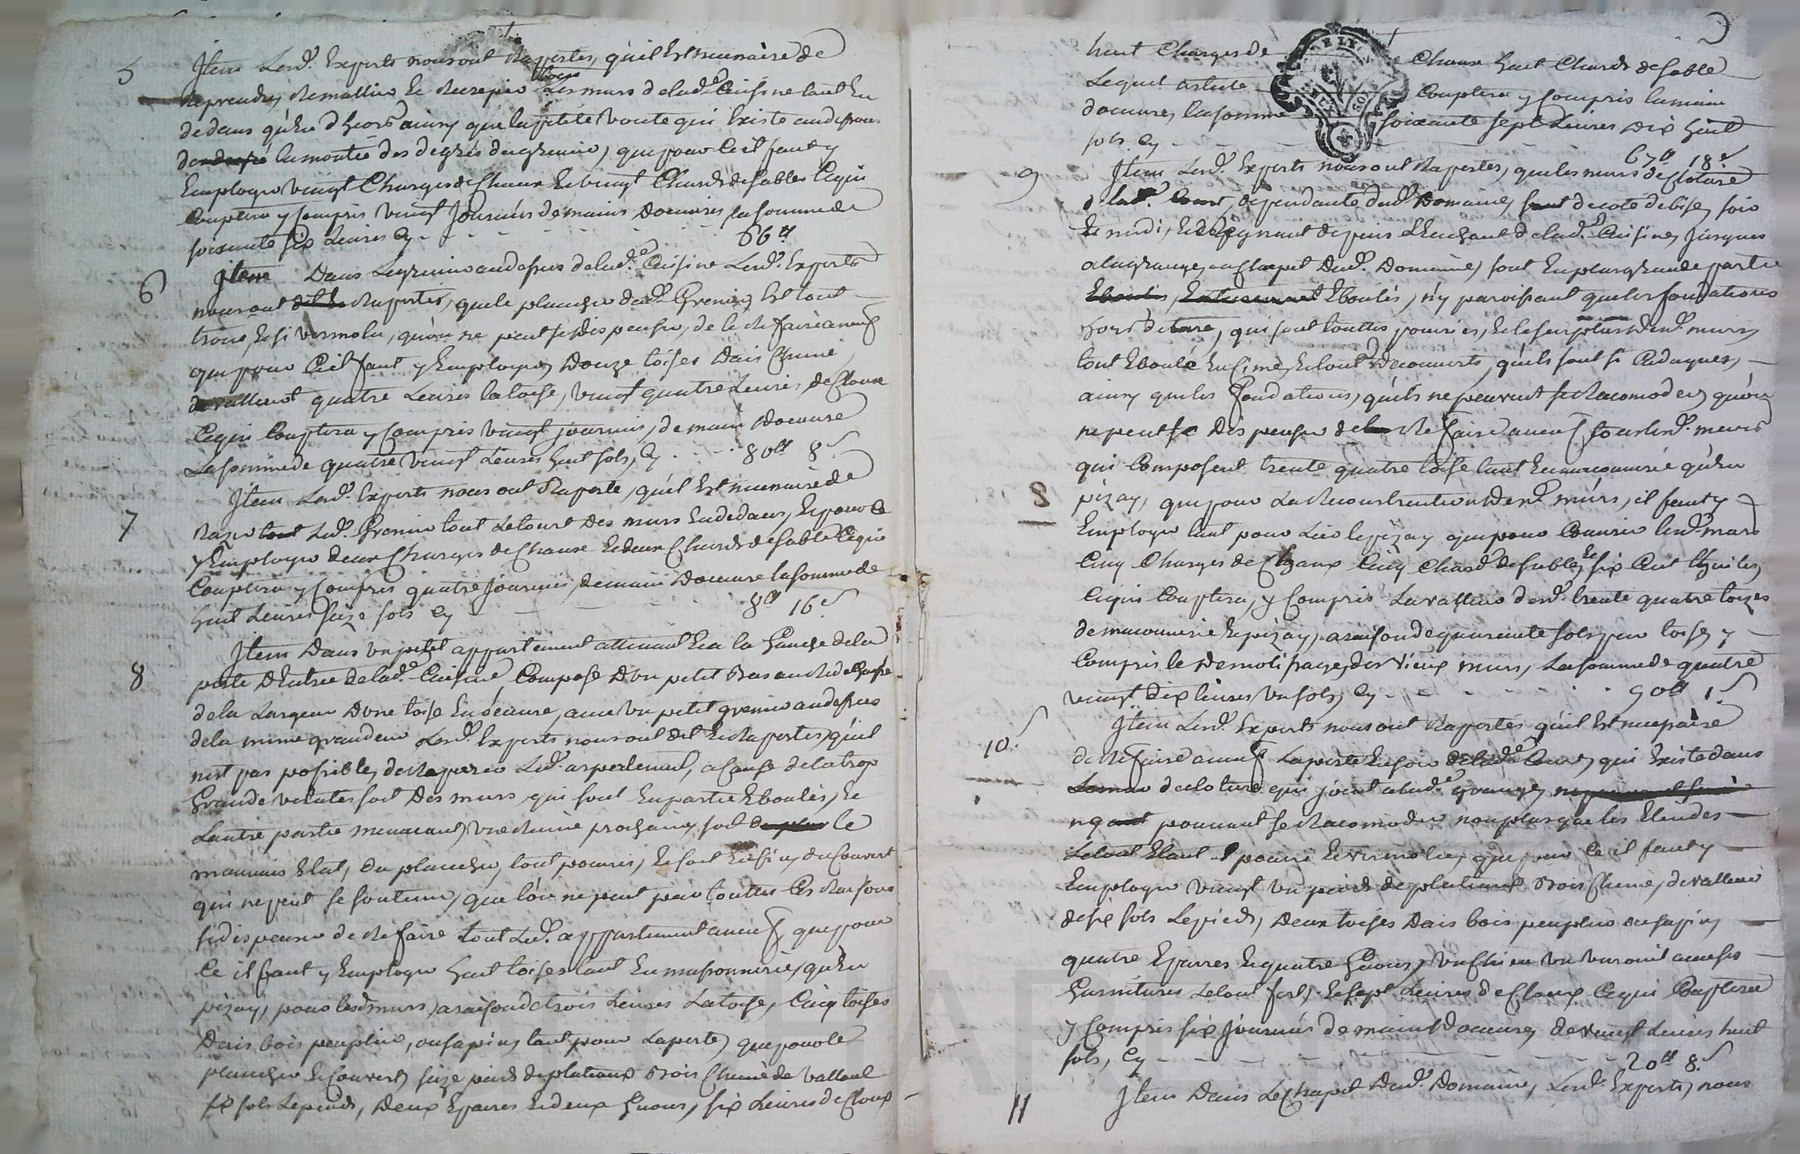 5
Item Lesd. Experts nous ont Raportés, quil Est necessaire de
reprendre, Remattire Et Recrepir tous Les murs de lad.e Cuisine tant En
dedans qu'En dhors ainsy que la petite voute qui Existe audessous
de la montée des degrés du grenier, que pour Ce il faut y
Employer vingt Charges de Chaux Et vingt Chards de sables Ce qui
Couptera y Compris vingt Journées de mains Doeuvres, la somme de
soixante six Livres Cy - - - 66 lt
6
Item Dans Le grenier audessus de lad.e Cuisine Lesd. Experts
nous ont Raportés, que le plancher dud. Grenier, Est tout
troué, Et si vermolu, qu'on ne peut se Dispenser, de le Refaire a neuf
que pour Ce il faut y Employer, Douze toises Dais Chene,
de valleur quatre Livres la toise, vingt quatre Livres de Cloux
Ce qui Couptera y Compris vingt journées, de main Doeuvre
La somme de quatre vingt Livres huit sols, Cy - - - 80 lt 8 s
7
Item Lesd. Experts nous ont Raporté, quil Est necessaire de
Led. Grenier tout Letour Des murs En dedans, Et pour Ce
y Employer deux Charges de Chaux Et deux Chards de sable Ce qui
Couptera y Compris quatre Journées, de main Doeuvre la somme de
huit Livres seize sols Cy - - - 8 lt 16 s
8
Item Dans un petit appartement attenant Et a la Gauche de la
porte D'Entrée de lad.e Cuisine Composé D'un petit Bas au Rez de Chosse
de la Largeur D'une toise En quarré, avec Un petit grenier audessus
de la meme grandeur Lesd. Experts nous ont dit Et Raportés, qu'il
n'est pas possible, de Reparer Led. appartement, a Cause de la trop
Grande vetusté soit Des murs, qui sont En partie Eboulés, Et
Lautre partie menacant, Une Ruine prochaine, soit Le
mauvais Etat, du plancher, tout pourri, Et soit Enfin du Couvert
qui ne peut se soutenir, que l'on ne peut pour touttes Ces Raisons
se dispenser de Refaire tout Led. appartement a neuf, que pour
Ce il faut y Employer huit toises tant En massonnerie, qu'En
pizay, pour Lesd. murs, a raison de trois Livres La toise, Cinq toises
Dais bois peuplier, ou sapin, tant pour La porte, que pour le
plancher Et Couvert, seize pieds de plateaux Bois Chene de valleur
six sols Le pied, Deux Eparres Et deux Gons, six Livres de Cloux
huit Charges de Chaux huit Chards de sable
Lequel article Couptera y Compris la main
doeuvres, la somme soixante sept Livres Dix huit
sols Cy - - - 67 lt 18 s
9
Item Lesd. Experts nous ont Raportés, que les murs de Cloture
de lad.e Cour, dependante dud. Domaine, de coté de bise, soir
Et midi, depuis L'Enchant de lad.e Cuisine, Jusques
a la grange, ou Chapit Dud. Domaine, sont En plus grande partie
Eboulés, n'y paroissant que les fondations
hors de terre, qui sont touttes pourries, Et le surplus Desd. murs
tout Eboulé En Cime, Et tout Decouverts, qu'ils sont si Caduques,
ainsy que les fondations, qu'ils ne peuvent se Racomoder, qu'on
ne peut se Dispenser de Refaire a neuf tous Lesd. murs
qui Composent trente quatre toise tant En maconnerie qu'En
pizay, que pour La Reconstruction Desd. murs, il faut y
Employer tant pour Lier le pizay que pour Couvrir Lesd. murs
Cinq Charges de Chaux Cinq Chards de sable, Et six Cent thuiles,
Ce qui Couptera, y Compris La valleur desd. trente quatre toizes
de maconnerie Et pizay, a raison de quarante sols par toise, y
Compris le Demolissage, des vieux murs, La somme de quatre
vingt dix livres Un sols, Cy - - - 90 lt 1 s
10.
Item Lesd. Experts nous ont Raportés qu'il Est necessaire
de Refaire a neuf La porte En soir de lad.e Cour, qui Existe dans
de cloture qui joint a lad.e grange,
pouvant se Racomoder non plus que les Etendes
Le tout Etant pourri Et vermolu, que, pour Ce il faut y
Employer vingt Un pieds de plateaux Bois Chene, de valleur
de six sols Le pied, Deux toises Dais bois peuplier ou sapin,
quatre Eparres Et quatre Gons, Un Un avec ses
Garnitures Le tout fert, Et sept Livres de Cloux Ce qui Couptera
y Compris six journées de mains Doeuvre, de vingt Livres huit
sols, Cy - - - 20 lt 8 s
11
Item Dans Le Chapit Dud. Domaine, Lesd. Experts, nous